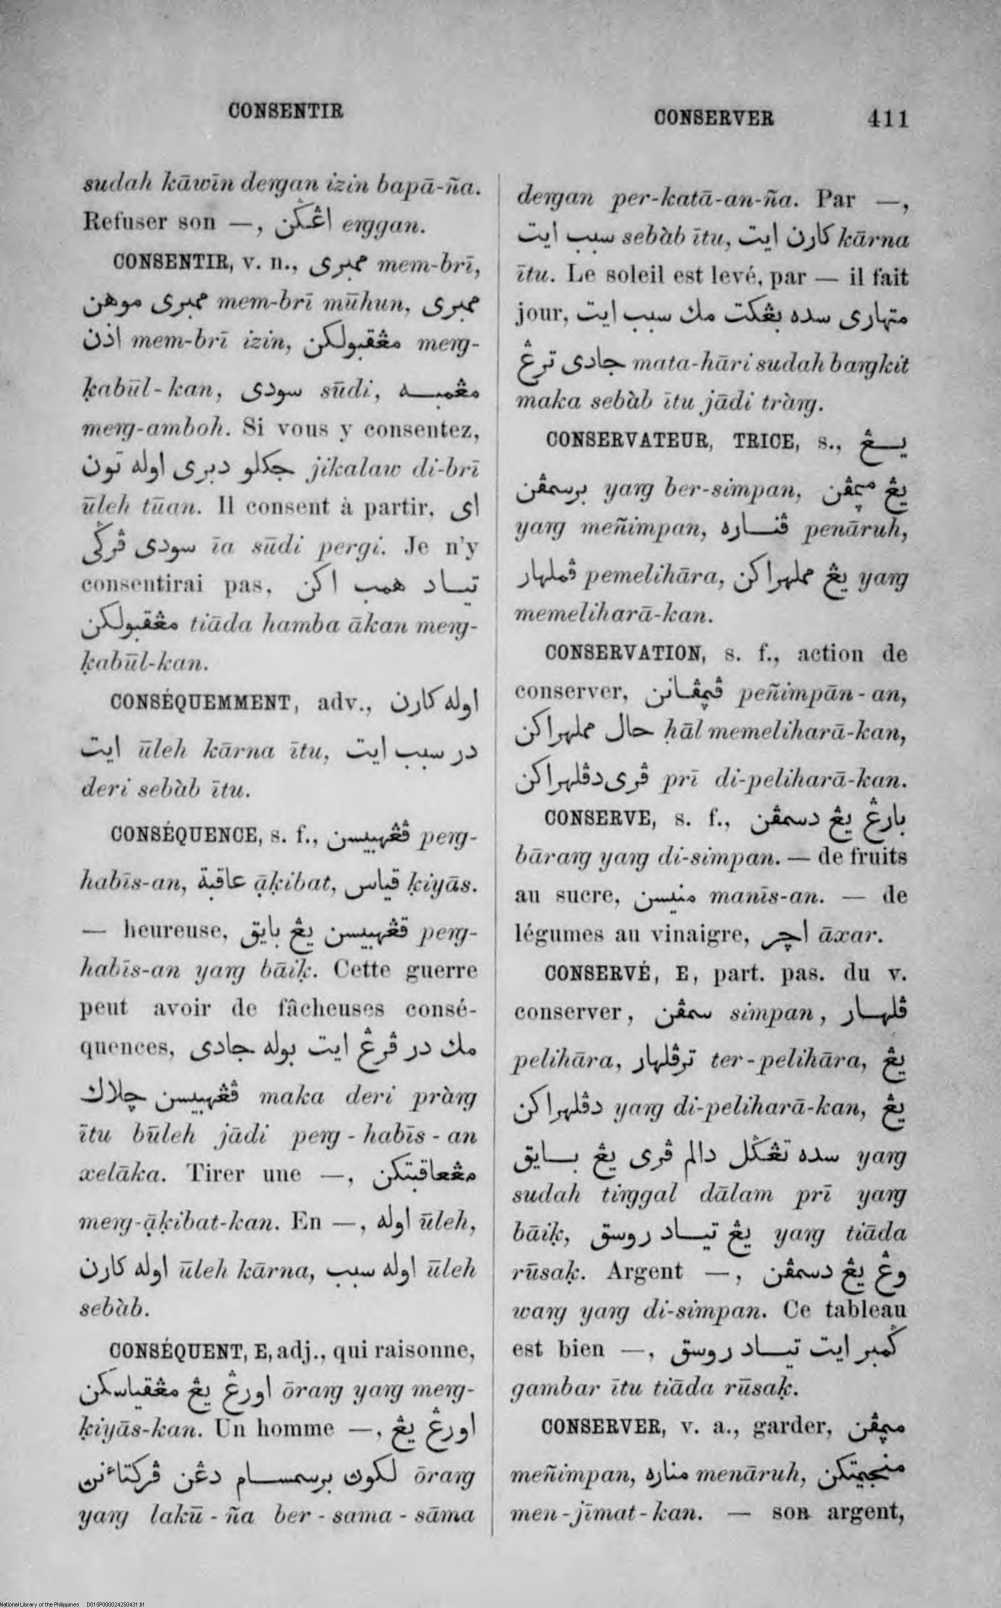 CONSENTIR
CONSERVER 411
sudah kāwīn dengan izin bapā-ña.
Refuser son —, اڠݢن enggan.
CONSENTIR, v. n., ممبرى mem-brī,
ممبرى موهن mem-brī mūhun, ممبرى
اذن mem-brī izin, مڠقبولكن meng-
ḳabūl-kan, سودى sūdi, مڠمبه
meng-amboh. Si vous y consentez,
جكلو دبرى اوله تون jikalaw di-brī
ūleh tūan. Il consent à partir, اى
سودى ڤرݢى īa sūdi pergi. Je n'y
consentirai pas, تياد همب اكن
مڠقبولكن tiāda hamba ākan meng-
ḳabūl-kan.
CONSÉQUEMMENT, adv., اوله كارن
ايت ūleh kārna ītu, در سبب ايت
deri sebàb ītu.
CONSÉQUENCE, s. f., ڤڠهبيسن peng-
habīs-an, عاقبة āḳibat, قياس ḳiyās.
— heureuse, ڤڠهبيسن يڠ بايق peng-
habīs-an yang bāiḳ. Cette guerre
peut avoir de fâcheuses consé-
quences, مك در ڤرڠ ايت بوله جادى
ڤڠهبيسن چلاك maka deri pràng
ītu būleh jādi peng-habīs-an
xelāka. Tirer une —, مڠعاقبتكن
meng-āḳibat-kan. En —, اوله ūleh,
اوله كارن ūleh kārna, اوله سبب ūleh
sebàb.
CONSÉQUENT, E, adj., qui raisonne,
اورڠ يڠ مڠقياسكن ōrang yang meng-
ḳiyās-kan. Un homme —, اورڠ يڠ
لكون برسمسام دڠن ڤركتاءنن ōrang
yang lakū-ña ber-sama-sāma
dengan per-katā-an-ña. Par —,
سبب ايت sebàb ītu, كارن ايت kārna
ītu. Le soleil est levé, par — il fait
jour, متهارى سده بڠكت مك سبب ايت
جادى ترڠ mata-hāri sudah bangkit
maka sebàb ītu jādi tràng.
CONSERVATEUR, TRICE, s., يڠ
برسمڤن yang ber-simpan, يڠ مڽمڤن
yang meñimpan, ڤناره penāruh,
ڤملهار pemelihāra, يڠ مملهراكن yang
memeliharā-kan.
CONSERVATION, s. f., action de
conserver, ڤڽمڤانن peñimpān-an,
حال مملهراكن ḥāl memeliharā-kan,
ڤرى دڤلهراكن prī di-peliharā-kan.
CONSERVE, s. f., بارڠ يڠ دسمڤن
bārang yang di-simpan. — de fruits
au sucre, منيسن manīs-an. — de
légumes au vinaigre, اچر āxar.
CONSERVÉ, E, part. pas. du v.
conserver, سمڤن simpan, ڤلهار
pelihāra, ترڤلهار ter-pelihāra, يڠ
دڤلهراكن yang di-peliharā-kan, يڠ
سده تڠݢل دالم ڤرى يڠ بايق yang
sudah tinggal dālam prī yang
bāiḳ, يڠ تياد روسق yang tiāda
rūsaḳ. Argent —, وڠ يڠ دسمڤن
wang yang di-simpan. Ce tableau
est bien —, ݢمبر ايت تياد روسق
gambar ītu tiāda rūsaḳ.
CONSERVER, v. a., garder, مڽمڤن
meñimpan, مناره menāruh, منجيمتكن
men-jīmat-kan. — son argent,
National Library of the Philippines